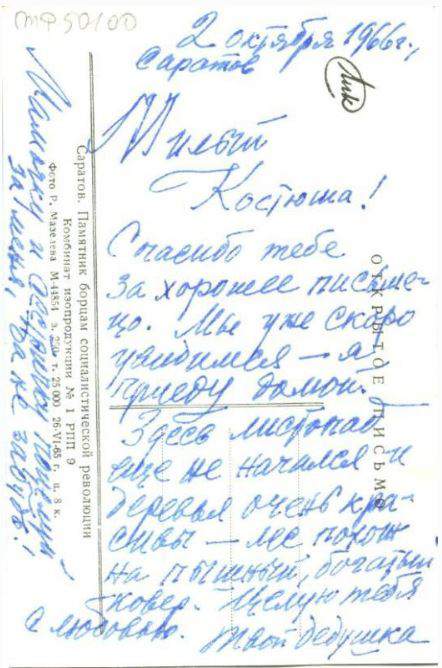 МФ50100
2 октября 1966 г.,
Саратов
Лик
Милый
Костюша!
Спасибо тебе
за хорошее письме-
цо. Мы уже скоро
увидимся — я
приеду домой.
Здесь листопад
еще не начался и
деревья очень кра-
сивы — лес похож
на пышный, богатый
ковер. Целую тебя
с любовью. Твой дедушка
Мамочку и поцелуй
за меня, да не забудь!
Саратов. Памятник борцам социалистической революции
Комбинат изопродукции № 1 РПП 9
Фото Р. Мазелева М-41854 з. т. 25 000 26-VI-65 г. ц. 3 к.
ОТКРЫТОЕ ПИСЬМО